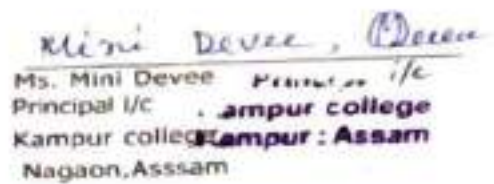 Mini Devee,
Ms. Mini Devee i/c
Principal I/c .ampur college
Kampur college Kampur : Assam
Nagaon,Asssam